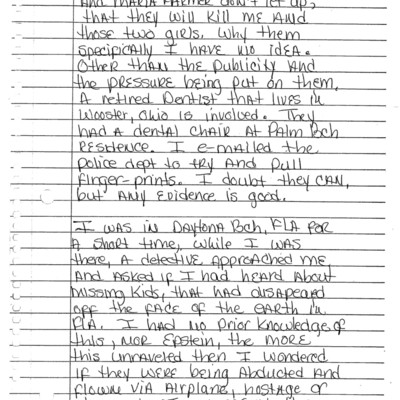 And MARIA FARMER don't let up,
that they will kill me and
those two girls. Why them
specifically I have no idea.
Other than the Publicity and
the pressure being put on them.
A retired Dentist that lives in
Wooster, Ohio is involved. They
had a dental chair at Palm Bch
Residence. I e-mailed the
police dept to try and pull
finger-prints. I doubt they can,
but any evidence is good.
I was in Daytona Bch, FLA for
a short time, while I was
there, a detective approached me,
and asked if I had heard about
missing kids, that had disapeared
off the face of the earth in
FLA. I had no prior knowledge of
this, nor Epstein, the more
this unraveled then I wondered
if they were being abducted and
flown via airplane, hostage or